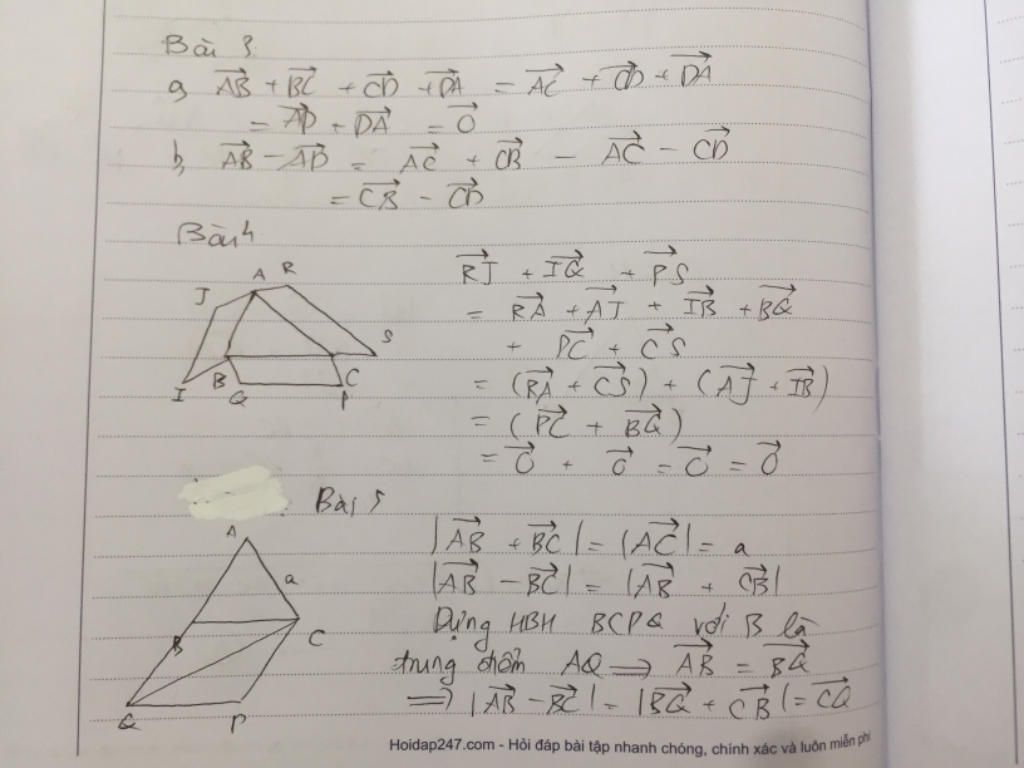 Bài 3
a, AB→ + BC→ + CD→ + DA→ = AC→ + CD→ + DA→
= AD→ + DA→ = O→
b, AB→ - AD→ = AC→ + CB→ - AC→ - CD→
= CB→ - CD→
Bài 4
A R
J
S
B C
I Q P
RJ→ + IQ→ + PS→
= RA→ + AJ→ + IB→ + BQ→
+ PC→ + CS→
= (RA→ + CS→) + (AJ→ + IB→)
= (PC→ + BQ→)
= O→ + O→ = O→ = O→
Bài 5
A
a
B C
Q P
|AB→ + BC→| = |AC→| = a
|AB→ - BC→| = |AB→ + CB→|
Dựng HBH BCPQ với B là
trung điểm AQ ⟹ AB→ = BQ→
⟹ |AB→ - BC→| = |BQ→ + CB→| = CQ→
Hoidap247.com - Hỏi đáp bài tập nhanh chóng, chính xác và luôn miễn phí